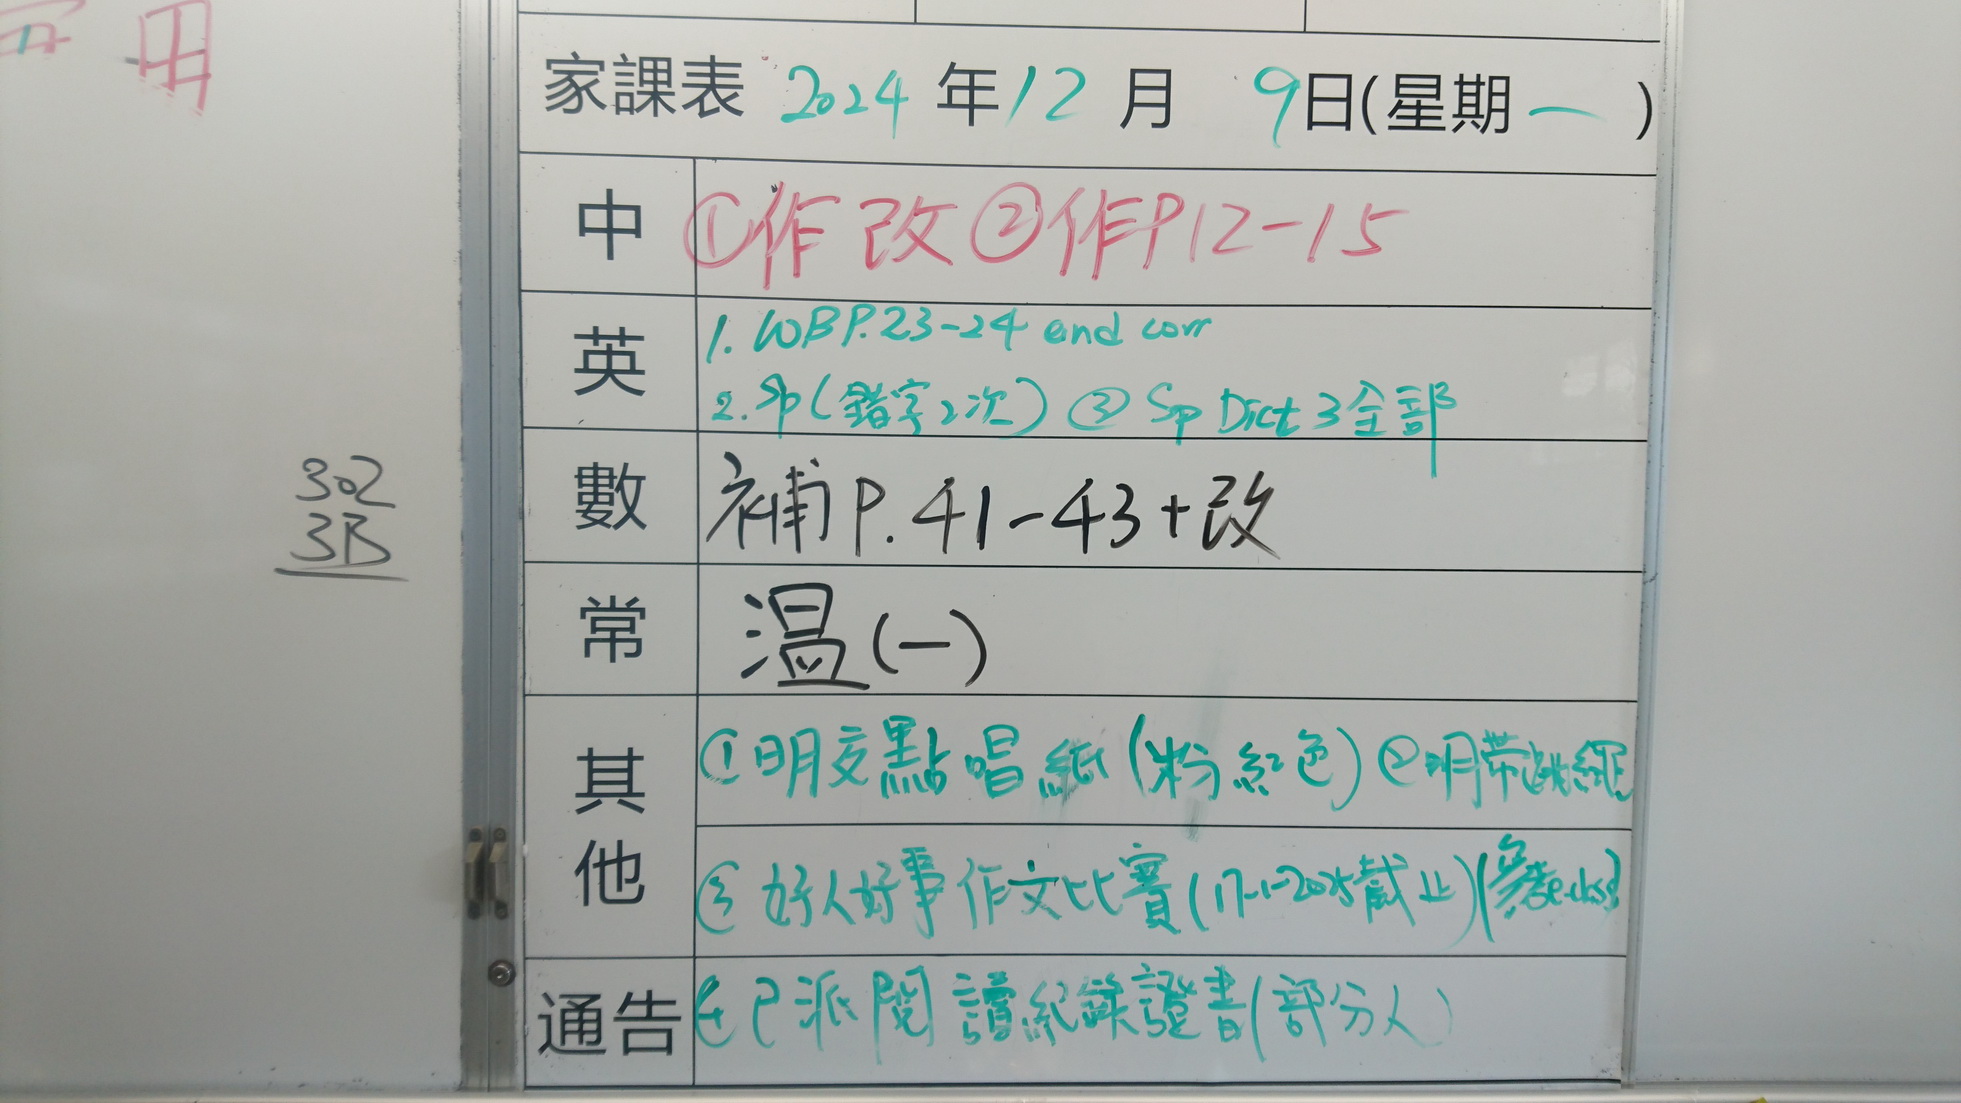 用
家課表 2024 年 12 月 9日(星期一)
中 ①作改 ②作P12-15
英 1. WB P.23-24 and corr
2. Sp(錯字2次) ③ Sp Dict 3全部
302
3B
數 補P.41-43+改
常 溫(一)
其他 ①明交點唱紙(粉紅色) ②明帶跳繩
③ 好人好事作文比賽(17-1-2025截止)(參考
通告 ④已派閱讀紀錄證書(部分人)